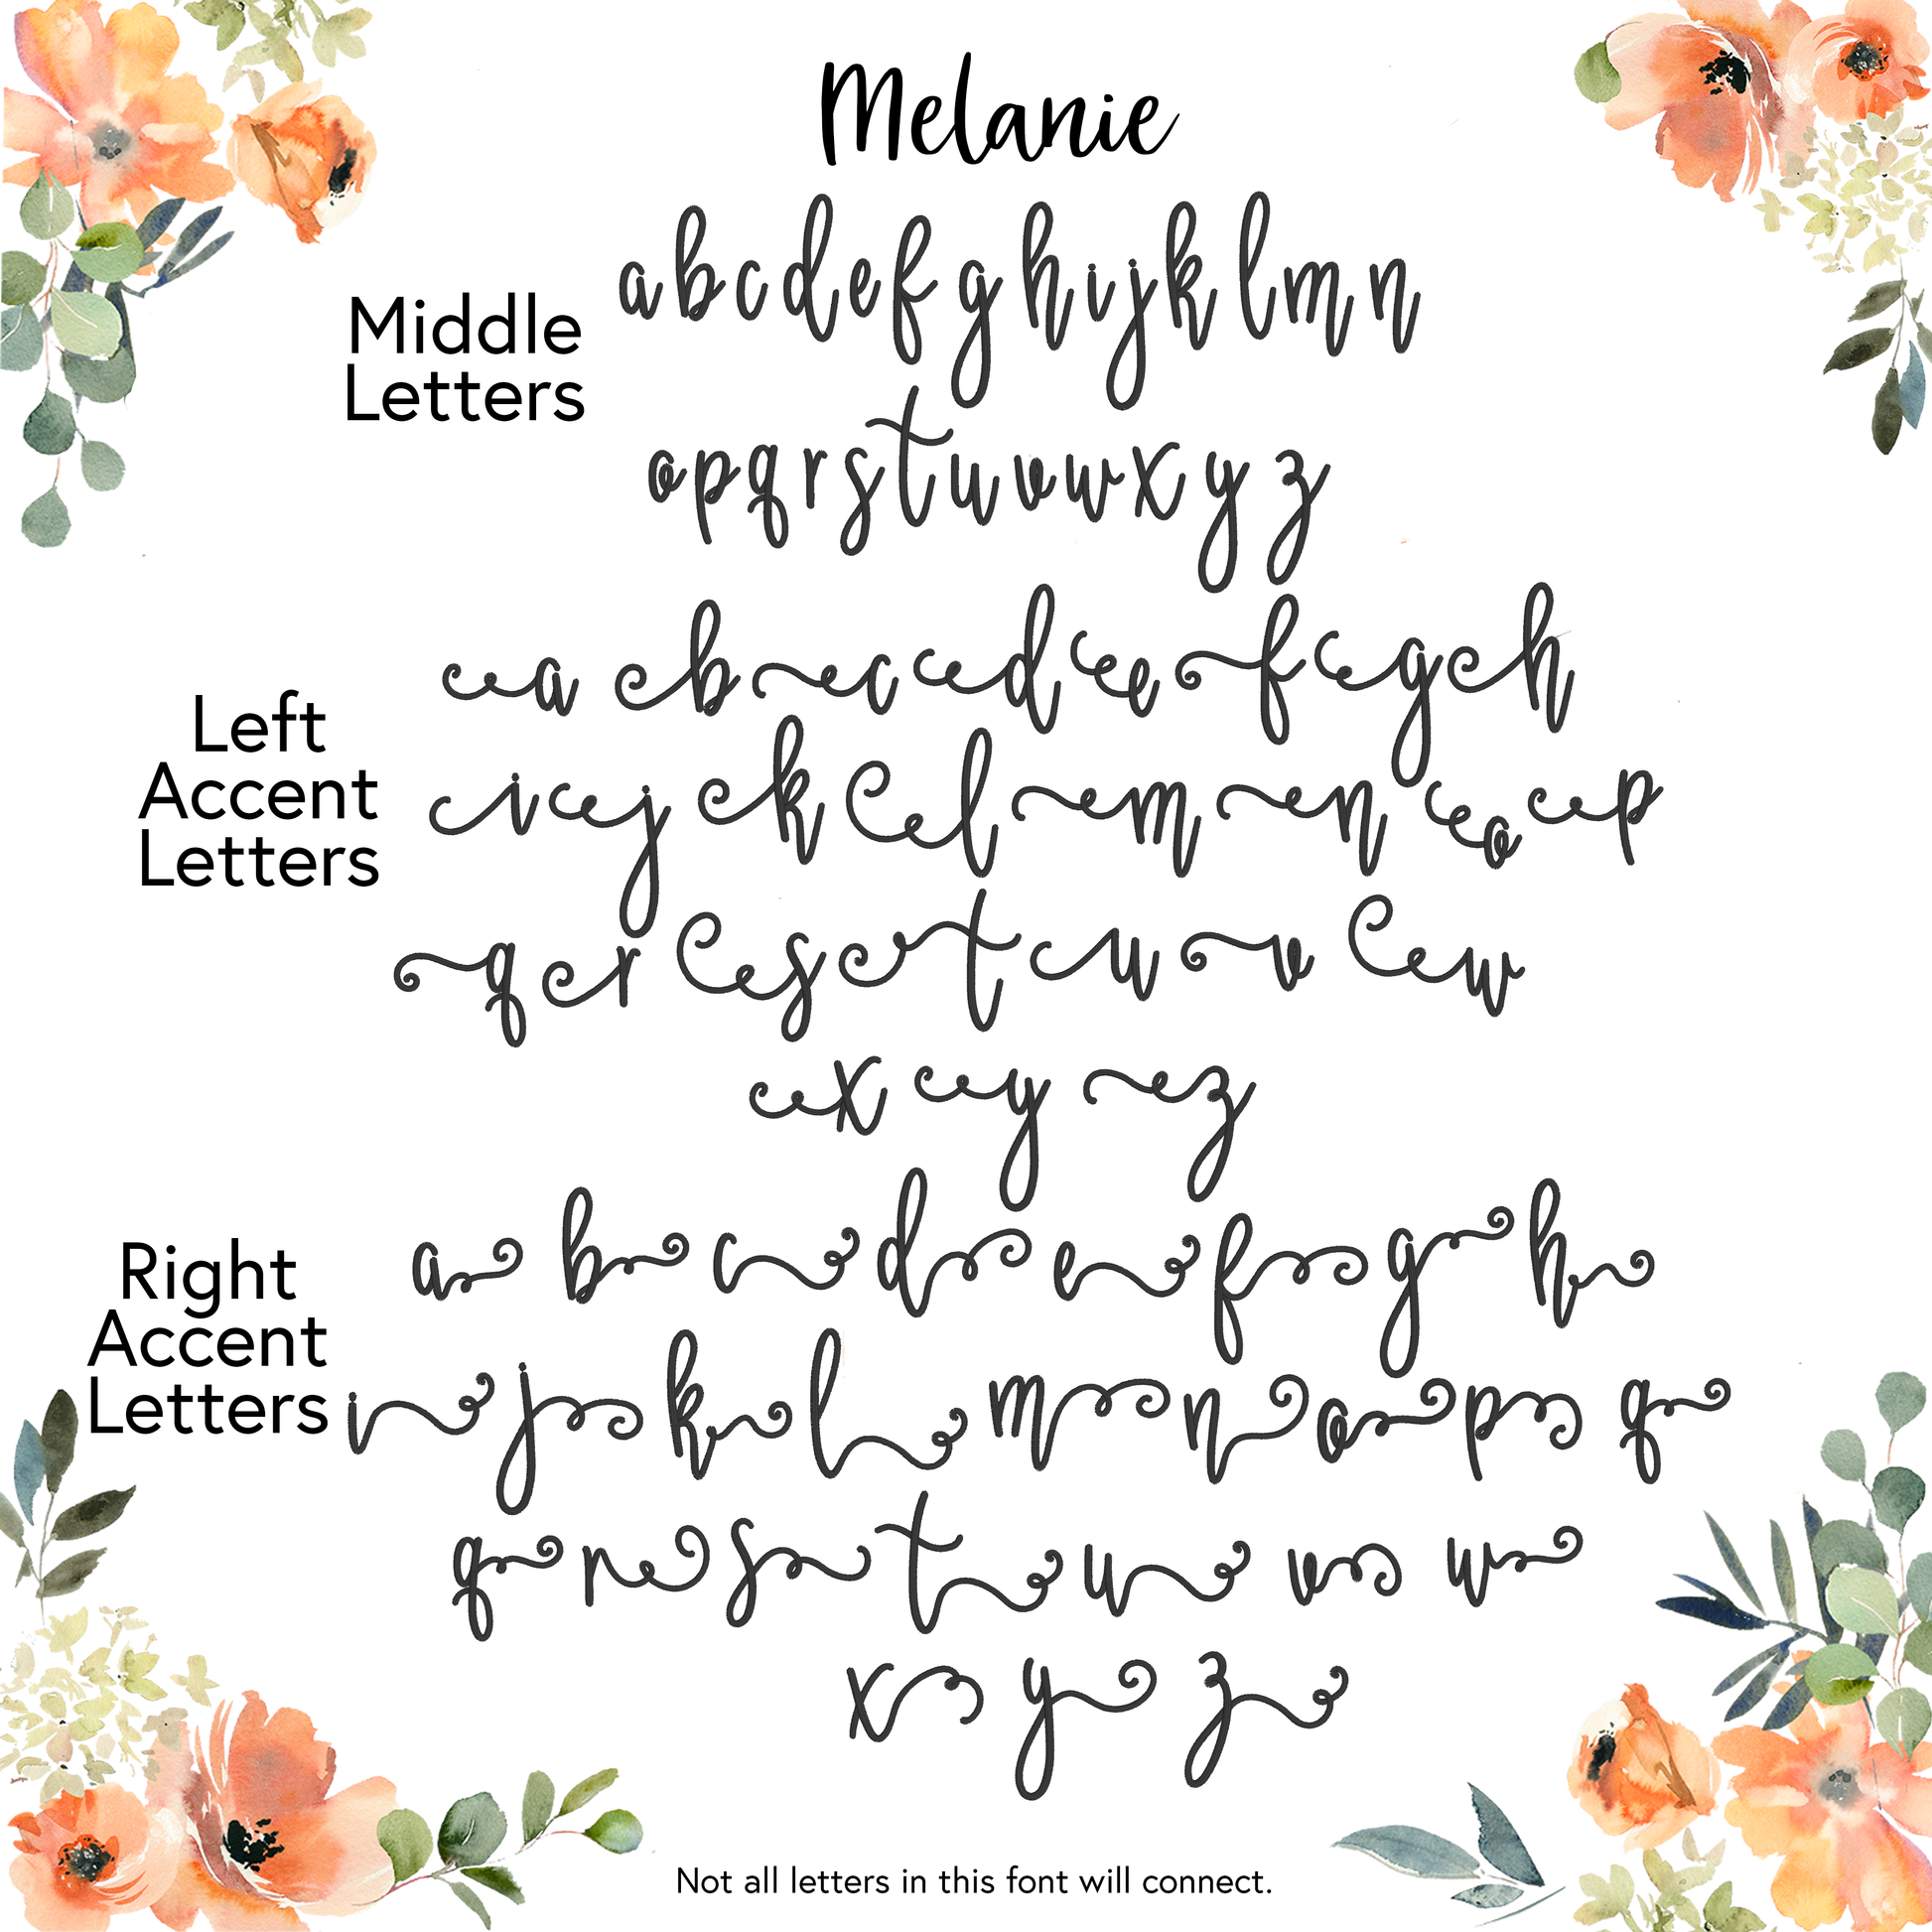 Melanie
a b c d e f g h i j k l m n
Middle
Letters
o p q r s t u v w x y z
a b c d e f g h
Left
Accent
Letters
i j k l m n o p
q r s t u v w
x y z
a b c d e f g h
Right
Accent
Letters
i j k l m n o p q
q r s t u v w
x y z
Not all letters in this font will connect.